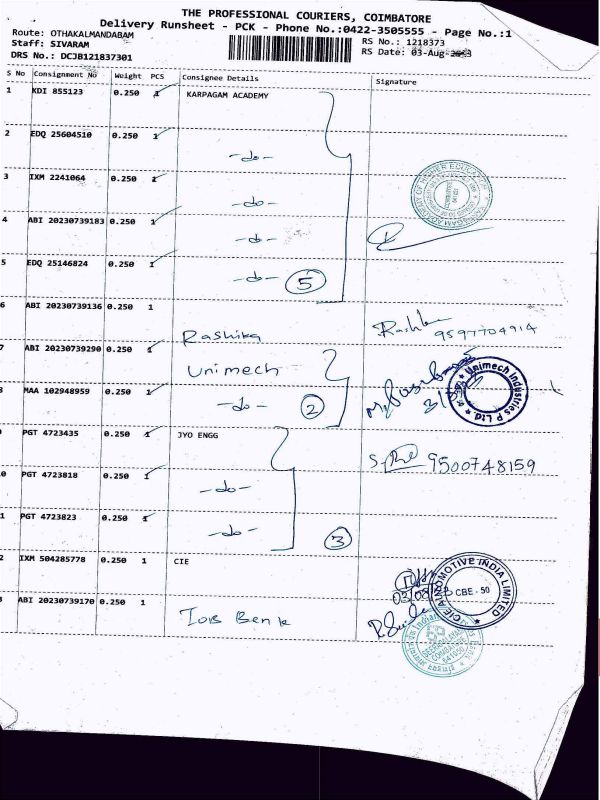 THE PROFESSIONAL COURIERS, COIMBATORE
Delivery Runsheet - PCK - Phone No.:0422-3505555 - Page No.:1
Route: OTHAKALMANDABAM
RS No.: 1218373
Staff: SIVARAM
RS Date: 03-Aug-2023
DRS No.: DCJB121837301
S No Consignment No Weight PCS Consignee Details Signature
1 KDI 855123 0.250 1 KARPAGAM ACADEMY
2 EDQ 25604510 0.250 1 -do-
3 IXM 2241064 0.250 1 -do-
4 ABI 20230739183 0.250 1 -do-
5 EDQ 25146824 0.250 1 -do- 5
6 ABI 20230739136 0.250 1 Rashika 9597704914
7 ABI 20230739290 0.250 1 Unimech
Unimech Industries P Ltd
8 MAA 102948959 0.250 1 -do- 2
9 PGT 4723435 0.250 1 JYO ENGG 9500748159
0 PGT 4723818 0.250 1 -do-
1 PGT 4723823 0.250 1 -do- 3
2 IXM 504285778 0.250 1 CIE
CIE AUTOMOTIVE INDIA LIMITED
CBE - 50
ABI 20230739170 0.250 1 IOB Bank